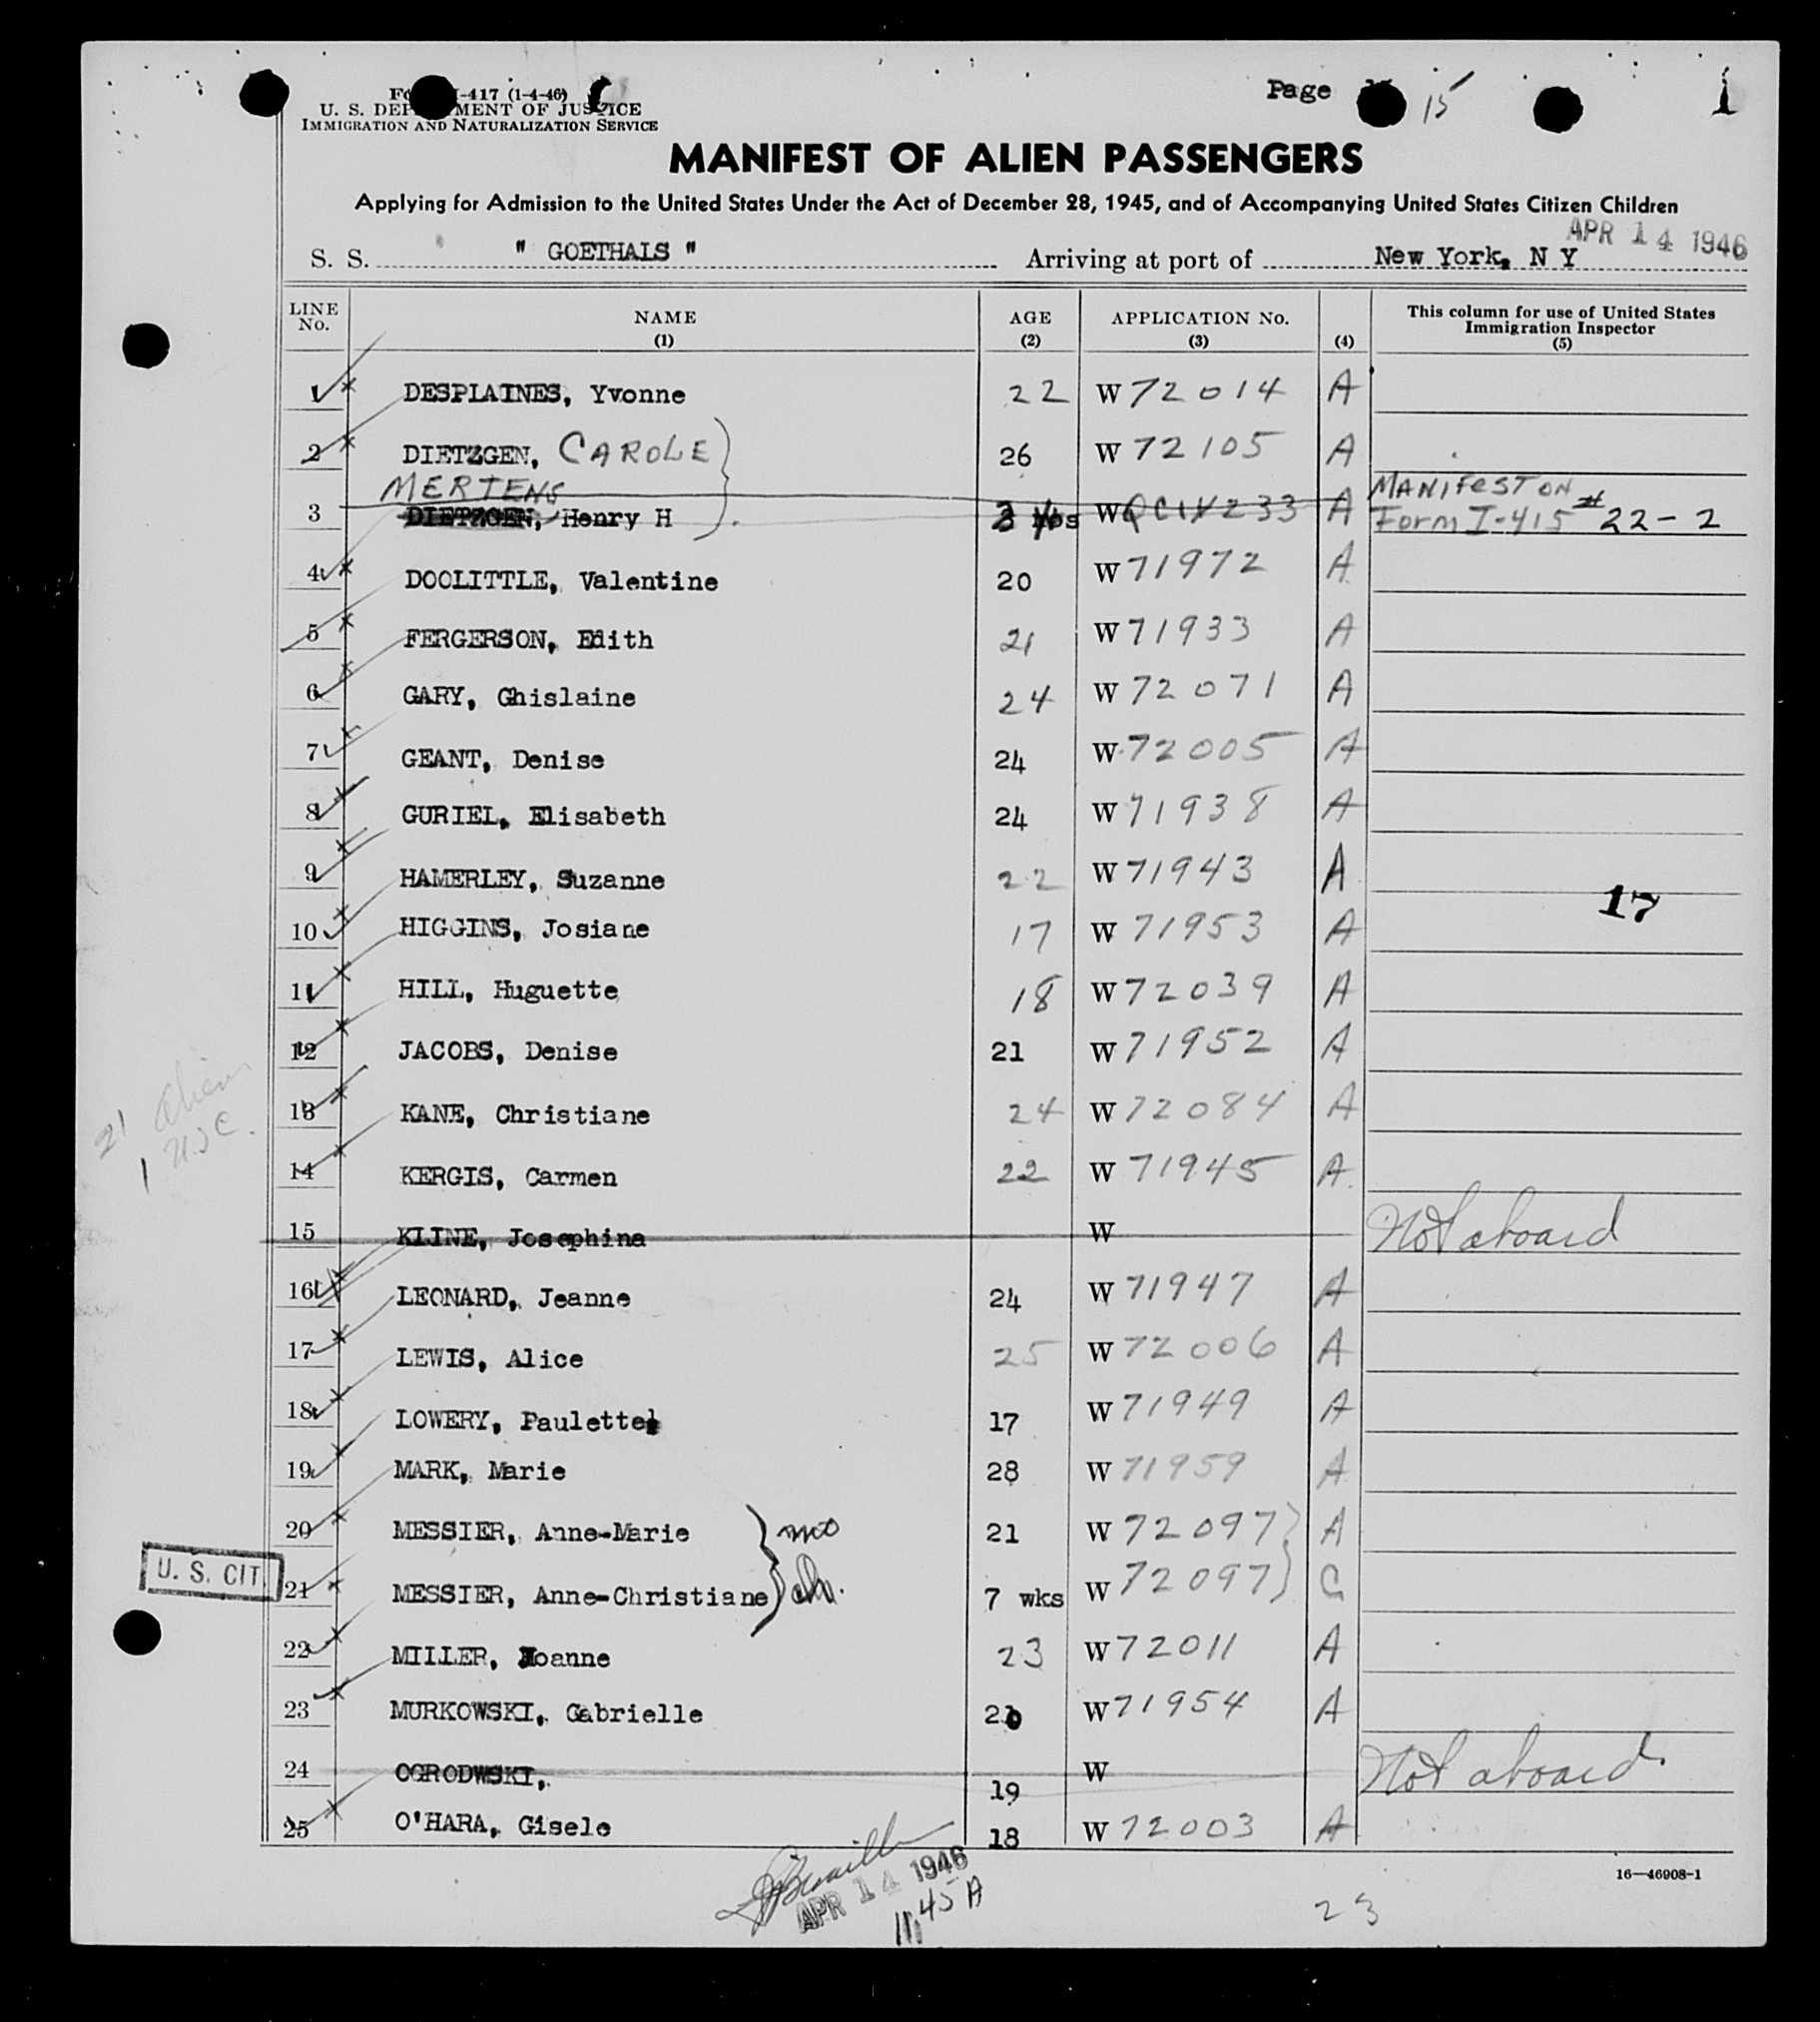 Page 15 1
-417 (1-4-46)
U. S. DEP MENT OF JUSTICE
IMMIGRATION AND NATURALIZATION SERVICE
MANIFEST OF ALIEN PASSENGERS
Applying for Admission to the United States Under the Act of December 28, 1945, and of Accompanying United States Citizen Children
APR 14 1946
S. S. " GOETHALS " Arriving at port of New York, N Y
LINE No. NAME (1) AGE (2) APPLICATION No. (3) (4) This column for use of United States Immigration Inspector (5)
1 DESPLAINES, Yvonne 22 W 72014 A
2 DIETZGEN, CAROLE 26 W 72105 A
MERTENS MANIFEST ON
3 DIETZGEN, Henry H 3 W A Form I-415 #22-2
4 DOOLITTLE, Valentine 20 W 71972 A
5 FERGERSON, Edith 21 W 71933 A
6 GARY, Ghislaine 24 W 72071 A
7 GEANT, Denise 24 W 72005 A
8 GURIEL, Elisabeth 24 W 71938 A
9 HAMERLEY, Suzanne 22 W 71943 A
17
10 HIGGINS, Josiane 17 W 71953 A
11 HILL, Huguette 18 W 72039 A
12 JACOBS, Denise 21 W 71952 A
13 KANE, Christiane 24 W 72084 A
21 Alien
1 USC.
14 KERGIS, Carmen 22 W 71945 A
15 KLINE, Josephina W Not aboard
16 LEONARD, Jeanne 24 W 71947 A
17 LEWIS, Alice 25 W 72006 A
18 LOWERY, Paulette 17 W 71949 A
19 MARK, Marie 28 W 71959 A
20 MESSIER, Anne-Marie mo 21 W 72097 A
U. S. CIT.
21 MESSIER, Anne-Christiane ch. 7 wks W 72097 C
22 MILLER, Joanne 23 W 72011 A
23 MURKOWSKI, Gabrielle 20 W 71954 A
24 OGRODWSKI, 19 W Not aboard.
25 O'HARA, Gisele 18 W 72003 A
16—46908-1
APR 14 1946
1145 A
23